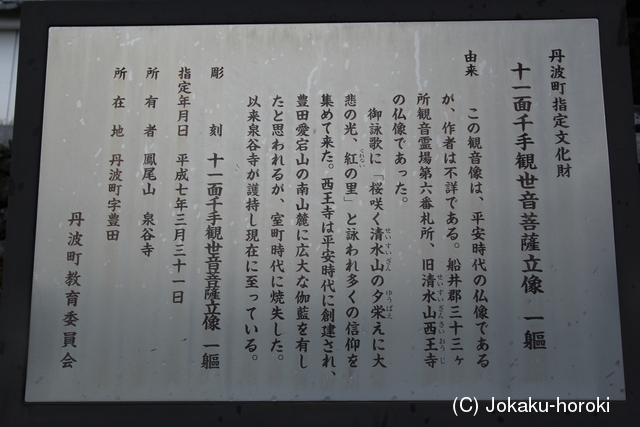 丹波町指定文化財
十一面千手観世音菩薩立像　一軀
由来　この観音像は、平安時代の仏像である
が、作者は不詳である。船井郡三十三ヶ
所観音霊場第六番札所、旧清水山西王寺
の仏像であった。
御詠歌に「桜咲く清水山の夕栄えに大
悲の光、紅の里」と詠われ多くの信仰を
集めて来た。西王寺は平安時代に創建され、
豊田愛宕山の南山麓に広大な伽藍を有し
たと思われるが、室町時代に焼失した。
以来泉谷寺が護持し現在に至っている。
彫刻　十一面千手観世音菩薩立像　一軀
指定年月日　平成七年三月三十一日
所有者　鳳尾山　泉谷寺
所在地　丹波町字豊田
丹波町教育委員会
(C) Jokaku-horoki